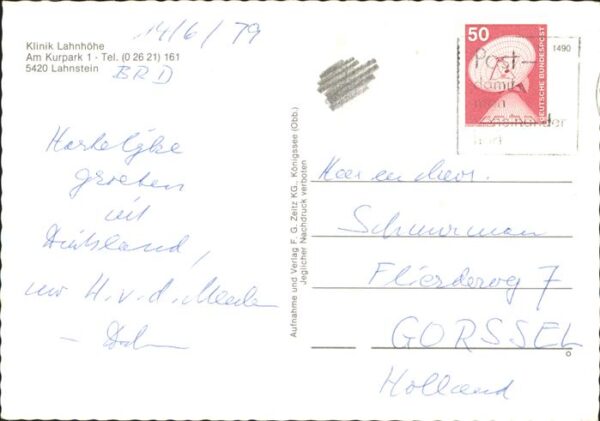 14/6/79
Klinik Lahnhöhe
Am Kurpark 1 - Tel. (0 26 21) 161
5420 Lahnstein
BRD
50
DEUTSCHE BUNDESPOST
1490
Post-
damit
man
voneinander
Hartelijke
groeten
uit
Duitsland,
H. v. d. Meule
Aufnahme und Verlag F. G. Zeitz KG., Königssee (Obb.)
Jeglicher Nachdruck verboten
Schuurman
Flierderweg 7
GORSSEL
Holland